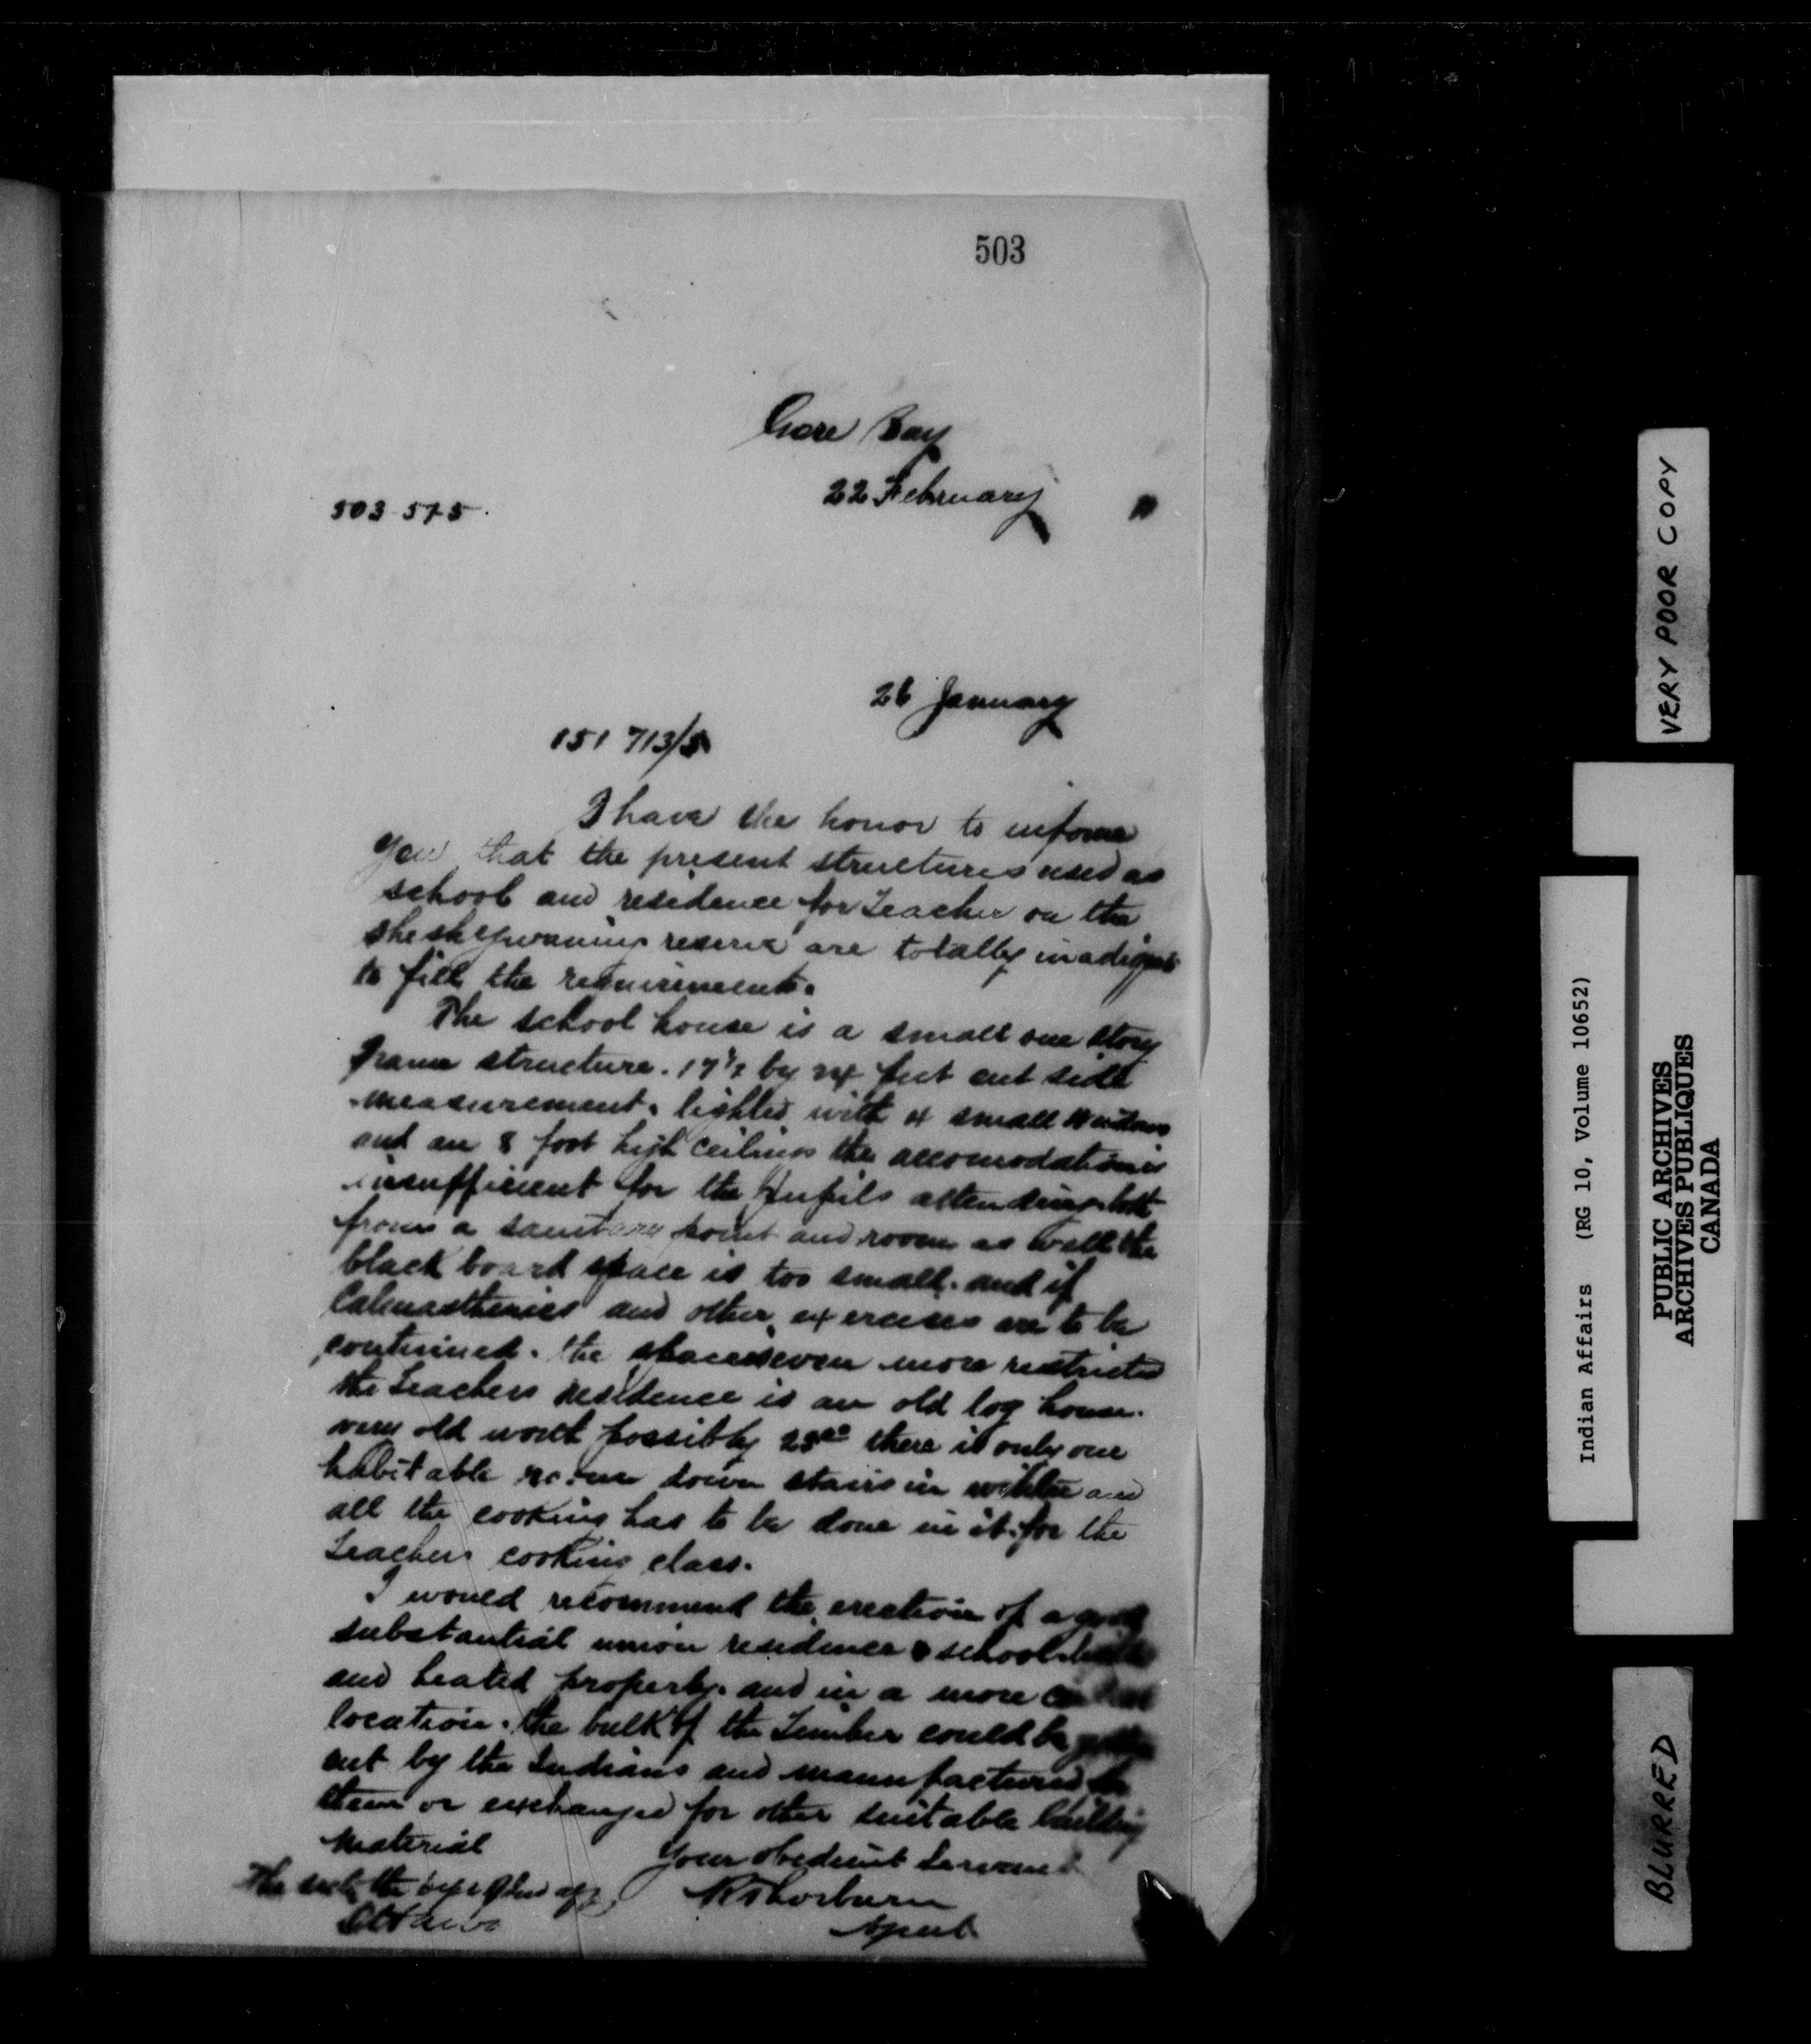 503
Gore Bay
22 February
503-575.
26 January
151 713/5
I have the honor to inform
you that the present structures used as
school and residence for Teacher on the
Sheshegwaning reserve are totally inadequate
to fill the requirements.
The school house is a small one story
frame structure. 17½ by 24 feet out side
measurement. lighted with 4 small windows
and an 8 foot high ceiling the accomodation is
insufficient for the pupils attending both
from a sanitary point and room as well the
black board space is too small. and if
Calenasthenics and other exercises are to be
continued. the space is even more restricted
the Teachers residence is an old log house.
very old worth possibly 25⁰⁰ there is only one
habitable room down stairs in winter and
all the cooking has to be done in it for the
Teachers cooking class.
I would recommend the erection of a good
substantial union residence & school
and heated properly. and in a more central
location. the bulk of the Timber could be gotten
out by the Indians and manufactured
them or exchanged for other suitable building
material
Your obedient Servant
The Ind
Ottawa
R Thorburn
Agent
VERY POOR COPY
Indian Affairs (RG 10, Volume 10652)
PUBLIC ARCHIVES
ARCHIVES PUBLIQUES
CANADA
BLURRED